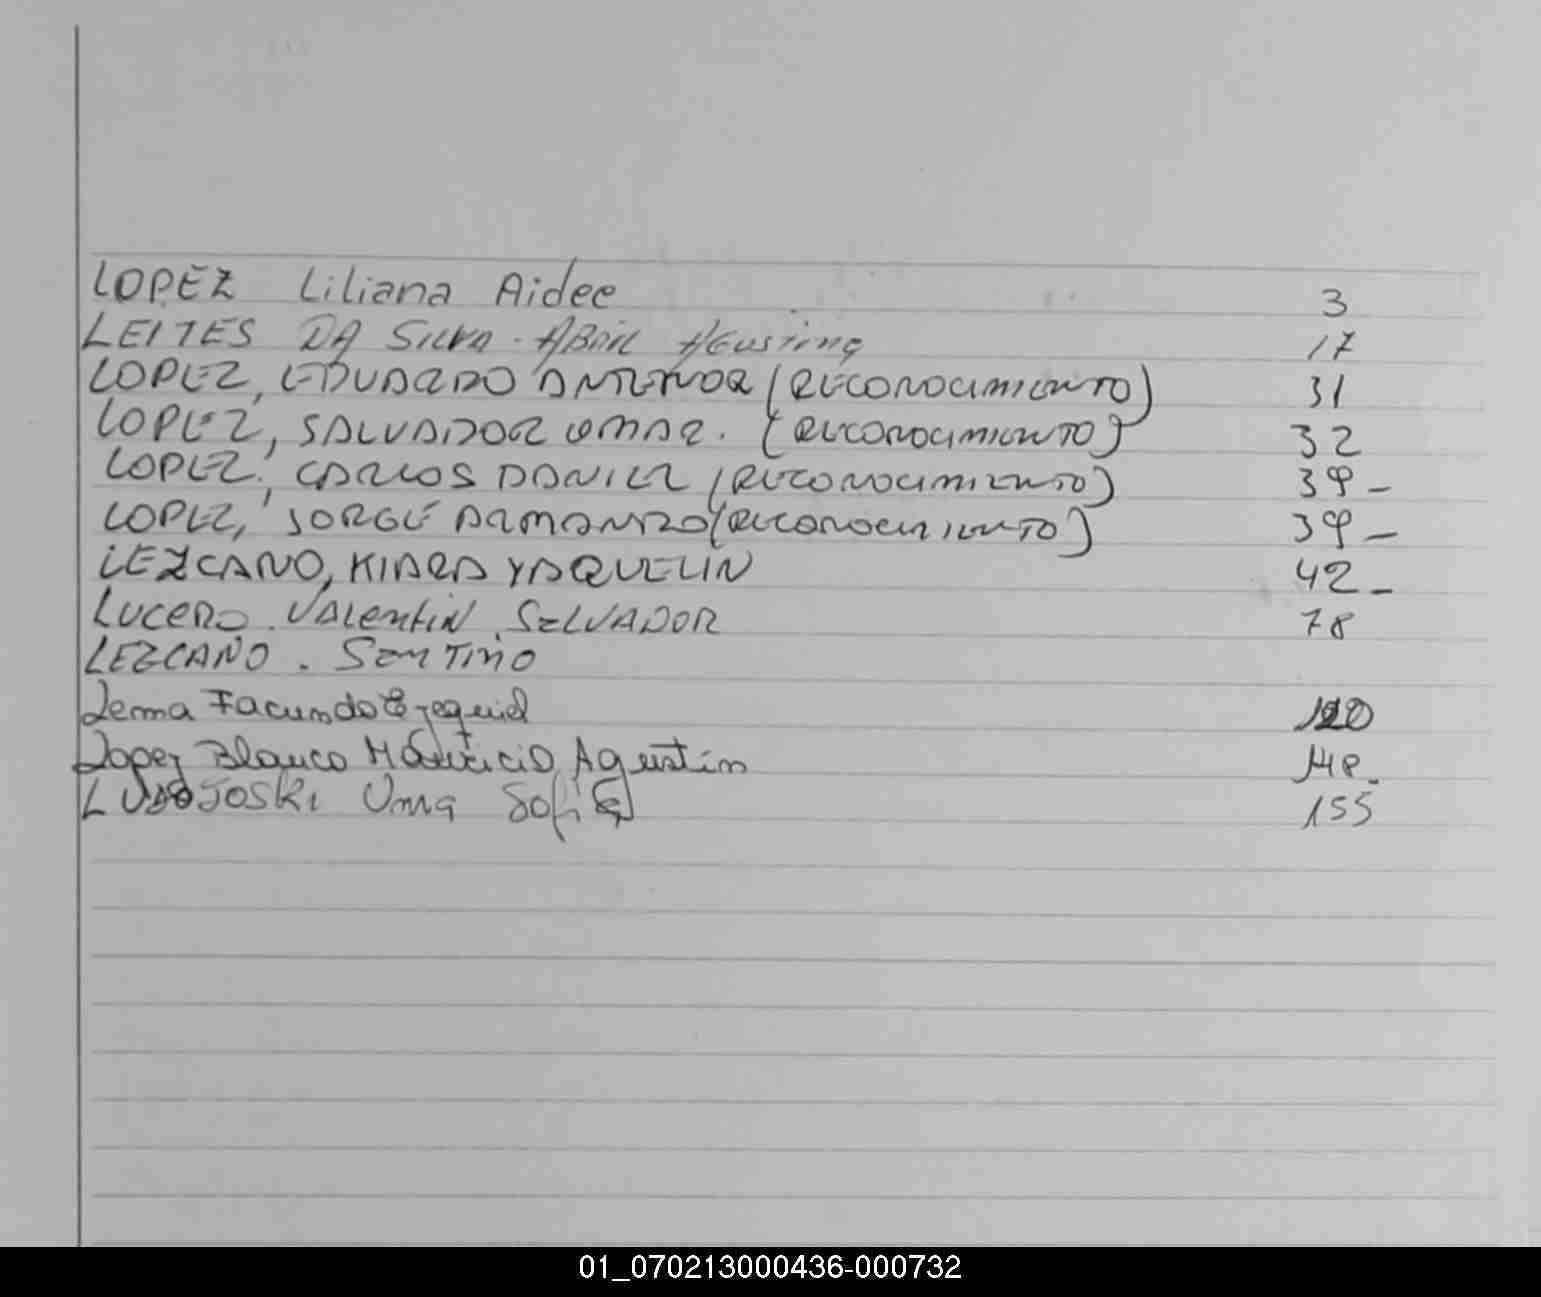 LOPEZ Liliana Aidee 3
LEITES DA SILVA. ABRIL AGUSTINA 17
LOPEZ, EDUARDO ANTENOR (RECONOCIMIENTO) 31
LOPEZ, SALVADOR OMAR. (RECONOCIMIENTO) 32
LOPEZ, CARLOS DANIEL (RECONOCIMIENTO) 39-
LOPEZ, JORGE ARMANDO (RECONOCIMIENTO) 39-
LEZCANO, KIARA YAQUELIN 42-
LUCERO. VALENTIN. SALVADOR 78
LEZCANO. SANTINO
Lema Facundo Ezequiel 120
Lopez Blanco Mauricio Agustin 148.
Uma Sofia 155
01_070213000436-000732